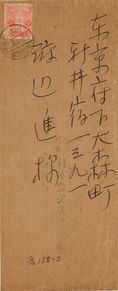 东京府下大森町
新井宿一三九一
渡辺進様
158-3